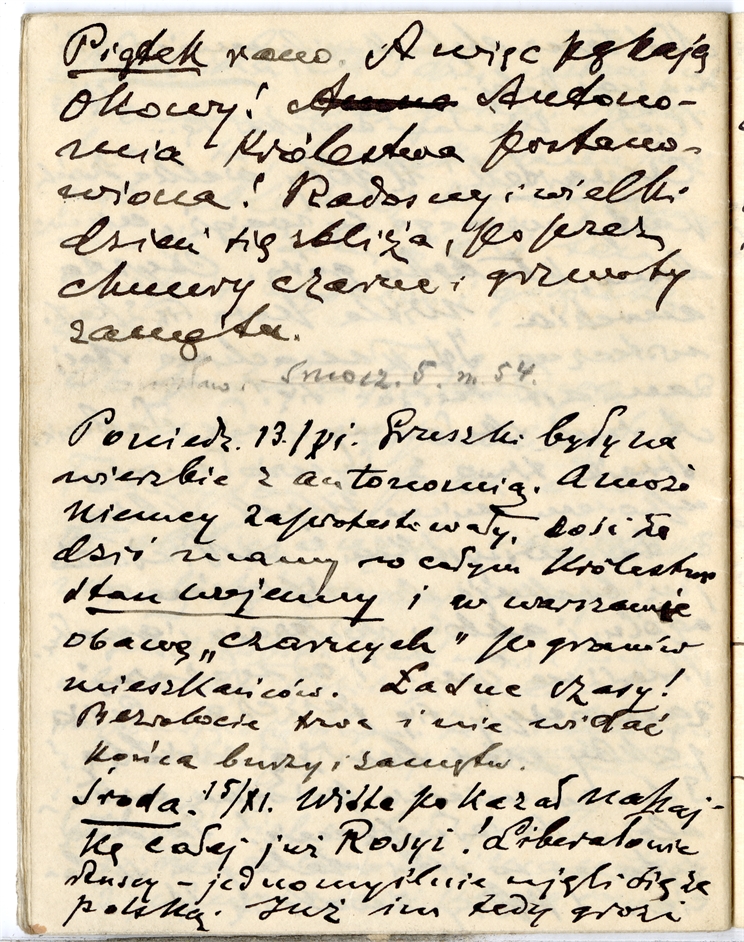 Piątek rano. A więc pękają
okowy! Autono-
mia Królestwa postano-
wiona! Radosny i wielki
dzień się zbliża, poprzez
chmury czarne i grzmoty
zamętu.
Smocz. 5. m. 54.
Poniedz. 13./XI. Gruszki były na
wierzbie z autonomią. A może
Niemcy zaprotestowały, dość że
dziś mamy w całym Królestwie
stan wojenny i w Warszawie
obawę „czarnych" pogromów
mieszkańców. Ładne czasy!
Bezrobocie trwa i nie widać
końca burzy i zamętu.
Środa. 15/XI. Witte pokazał nahaj-
kę całej już Rosyi! Liberałowie
ruscy – jednomyślnie ujęli się za
polską. Już im tedy grozi